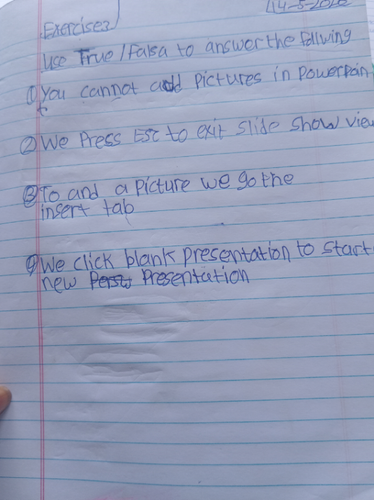 14-5-2026
Exercise2
Use True/Falsa to answer the follwing
① You cannot add Pictures in Powerpain
② We Press Esc to exit slide show view
③ To and a Picture we go the
insert tab
④ We click blank presentation to start
new Presentation